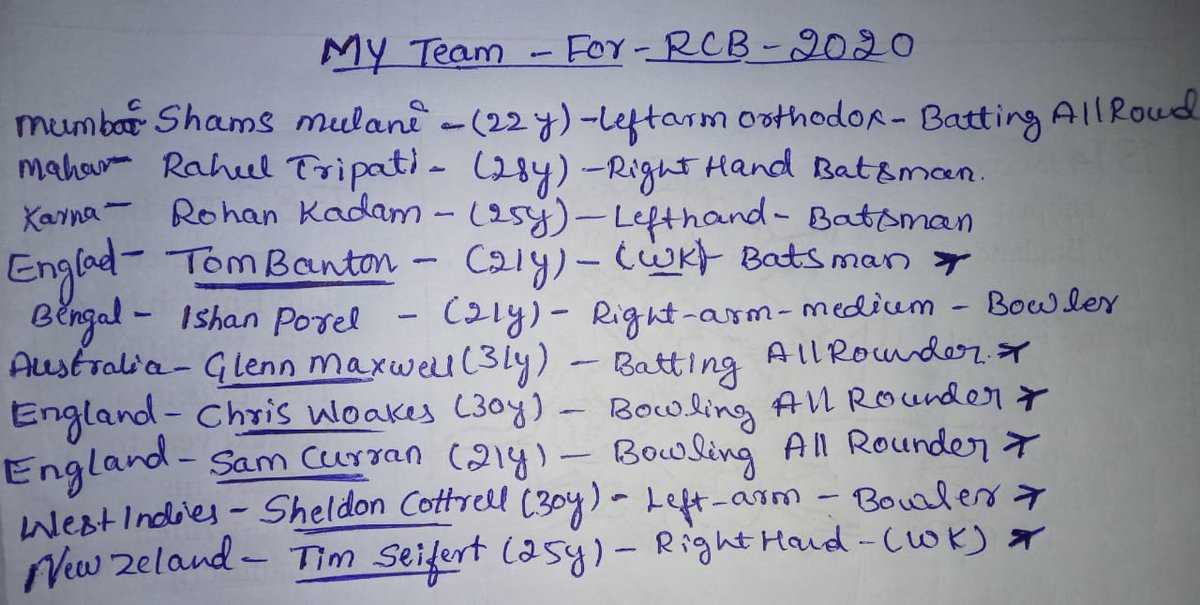 My Team - For - RCB - 2020
mumbai Shams mulani - (22y) - Leftarm orthodox - Batting AllRoud
Mahar - Rahul Tripati - (28y) - Right Hand Batsman.
Karna - Rohan Kadam - (25y) - Lefthand - Batsman
Englad - Tom Banton - (21y) - (WK) Batsman *
Bengal - Ishan Porel - (21y) - Right-arm-medium - Bowler
Australia - Glenn Maxwell (31y) - Batting AllRounder. *
England - Chris Woakes (30y) - Bowling All Rounder *
England - Sam Curran (21y) - Bowling All Rounder *
West Indies - Sheldon Cottrell (30y) - Left-arm - Bowler *
New Zeland - Tim Seifert (25y) - Right Hand - (WK) *